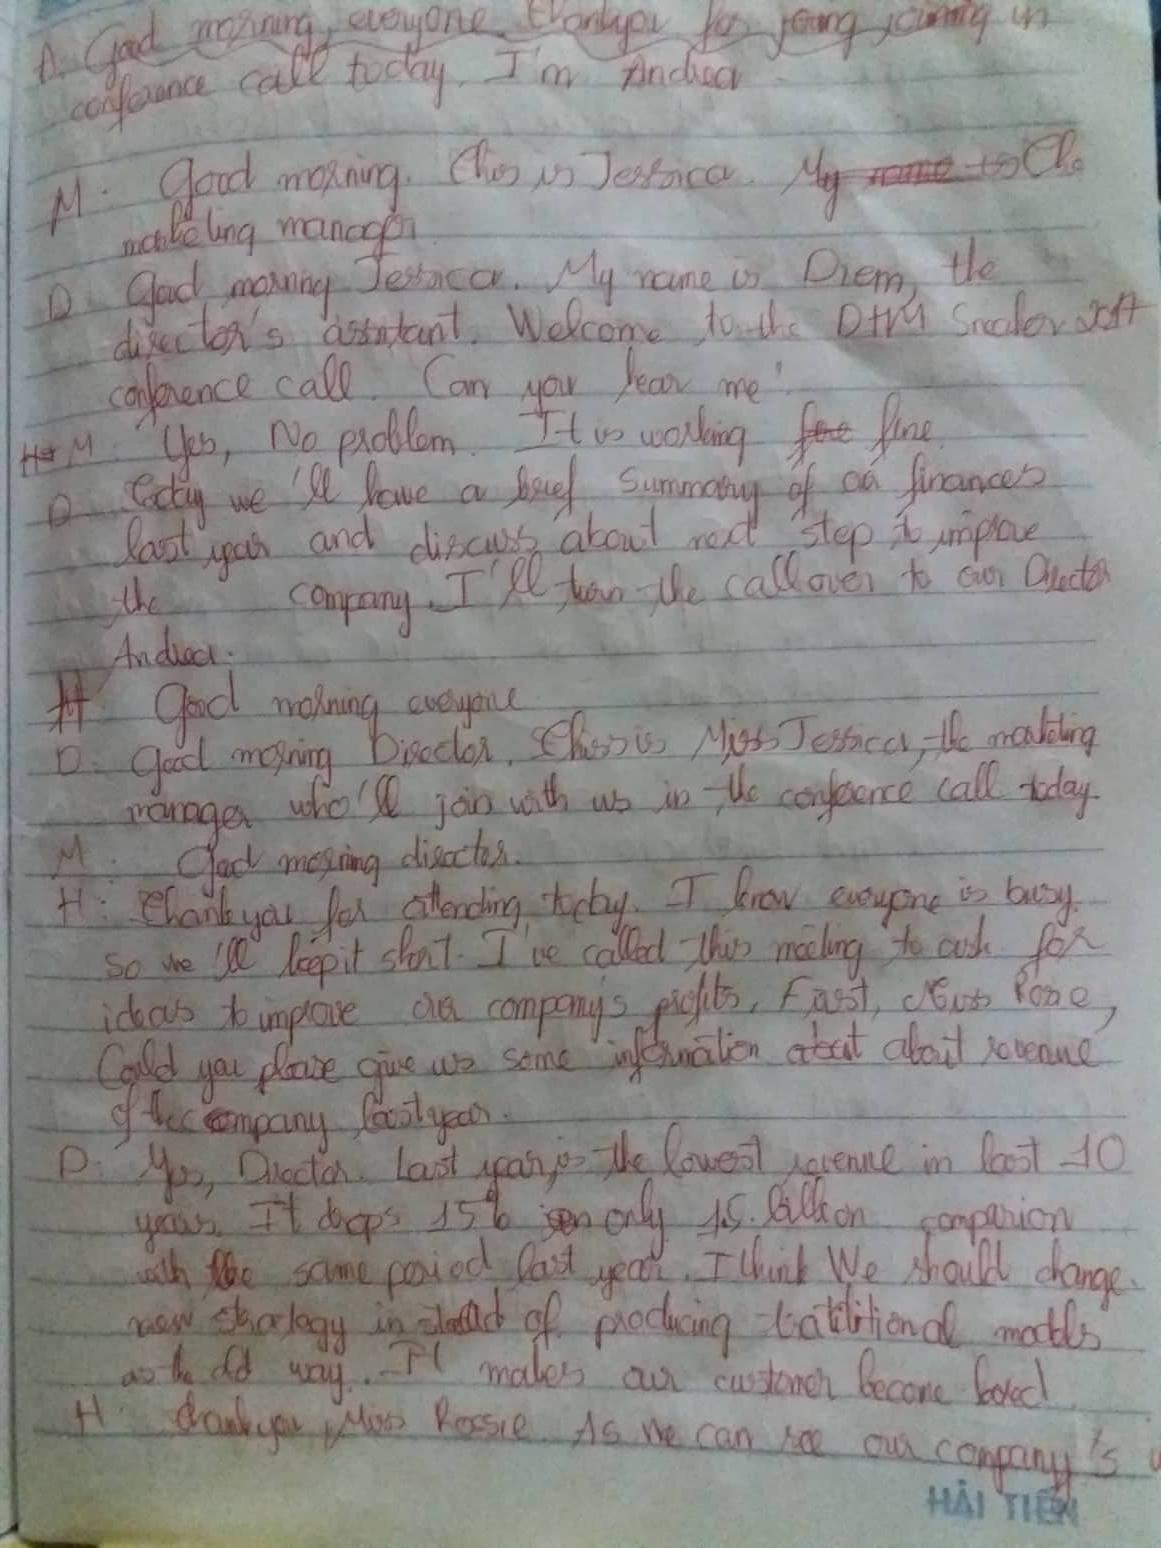 A. Good morning, everyone. Thankyou for joing joining in
conference call today. I'm Andrea
M. Good morning. This is Jessica. My name is The
marketing manager
D. Good morning Jessica. My name is Diem, the
director's assistant. Welcome to the DHM Sneaker
conference call. Can you hear me?
H M. Yes, No problem. It is working fine
D. Today we'll have a brief summary of our finances
last year and discuss about next step to improve
the company. I'll turn the call over to our Director
Andrea.
H Good morning everyone
D. Good morning Director. This is Miss Jessica, the marketing
manager who'll join with us in the conference call today
M. Good morning director.
H: Thankyou for attending today. I know everyone is busy.
so we'll keep it short. I've called this meeting to ask for
ideas to improve our company's profits, First, Miss Rose,
Could you please give us some information about about revenue
of the company last year.
D: Yes, Director. Last year is the lowest revenue in last 10
years. It drops 15% on only 15. billion comparion
with the same period last year. I think We should change
new strategy instead of producing models
as the old way. It makes our customer become bored.
H thankyou, Miss Rossie. As we can see our company's
HẢI TIẾN